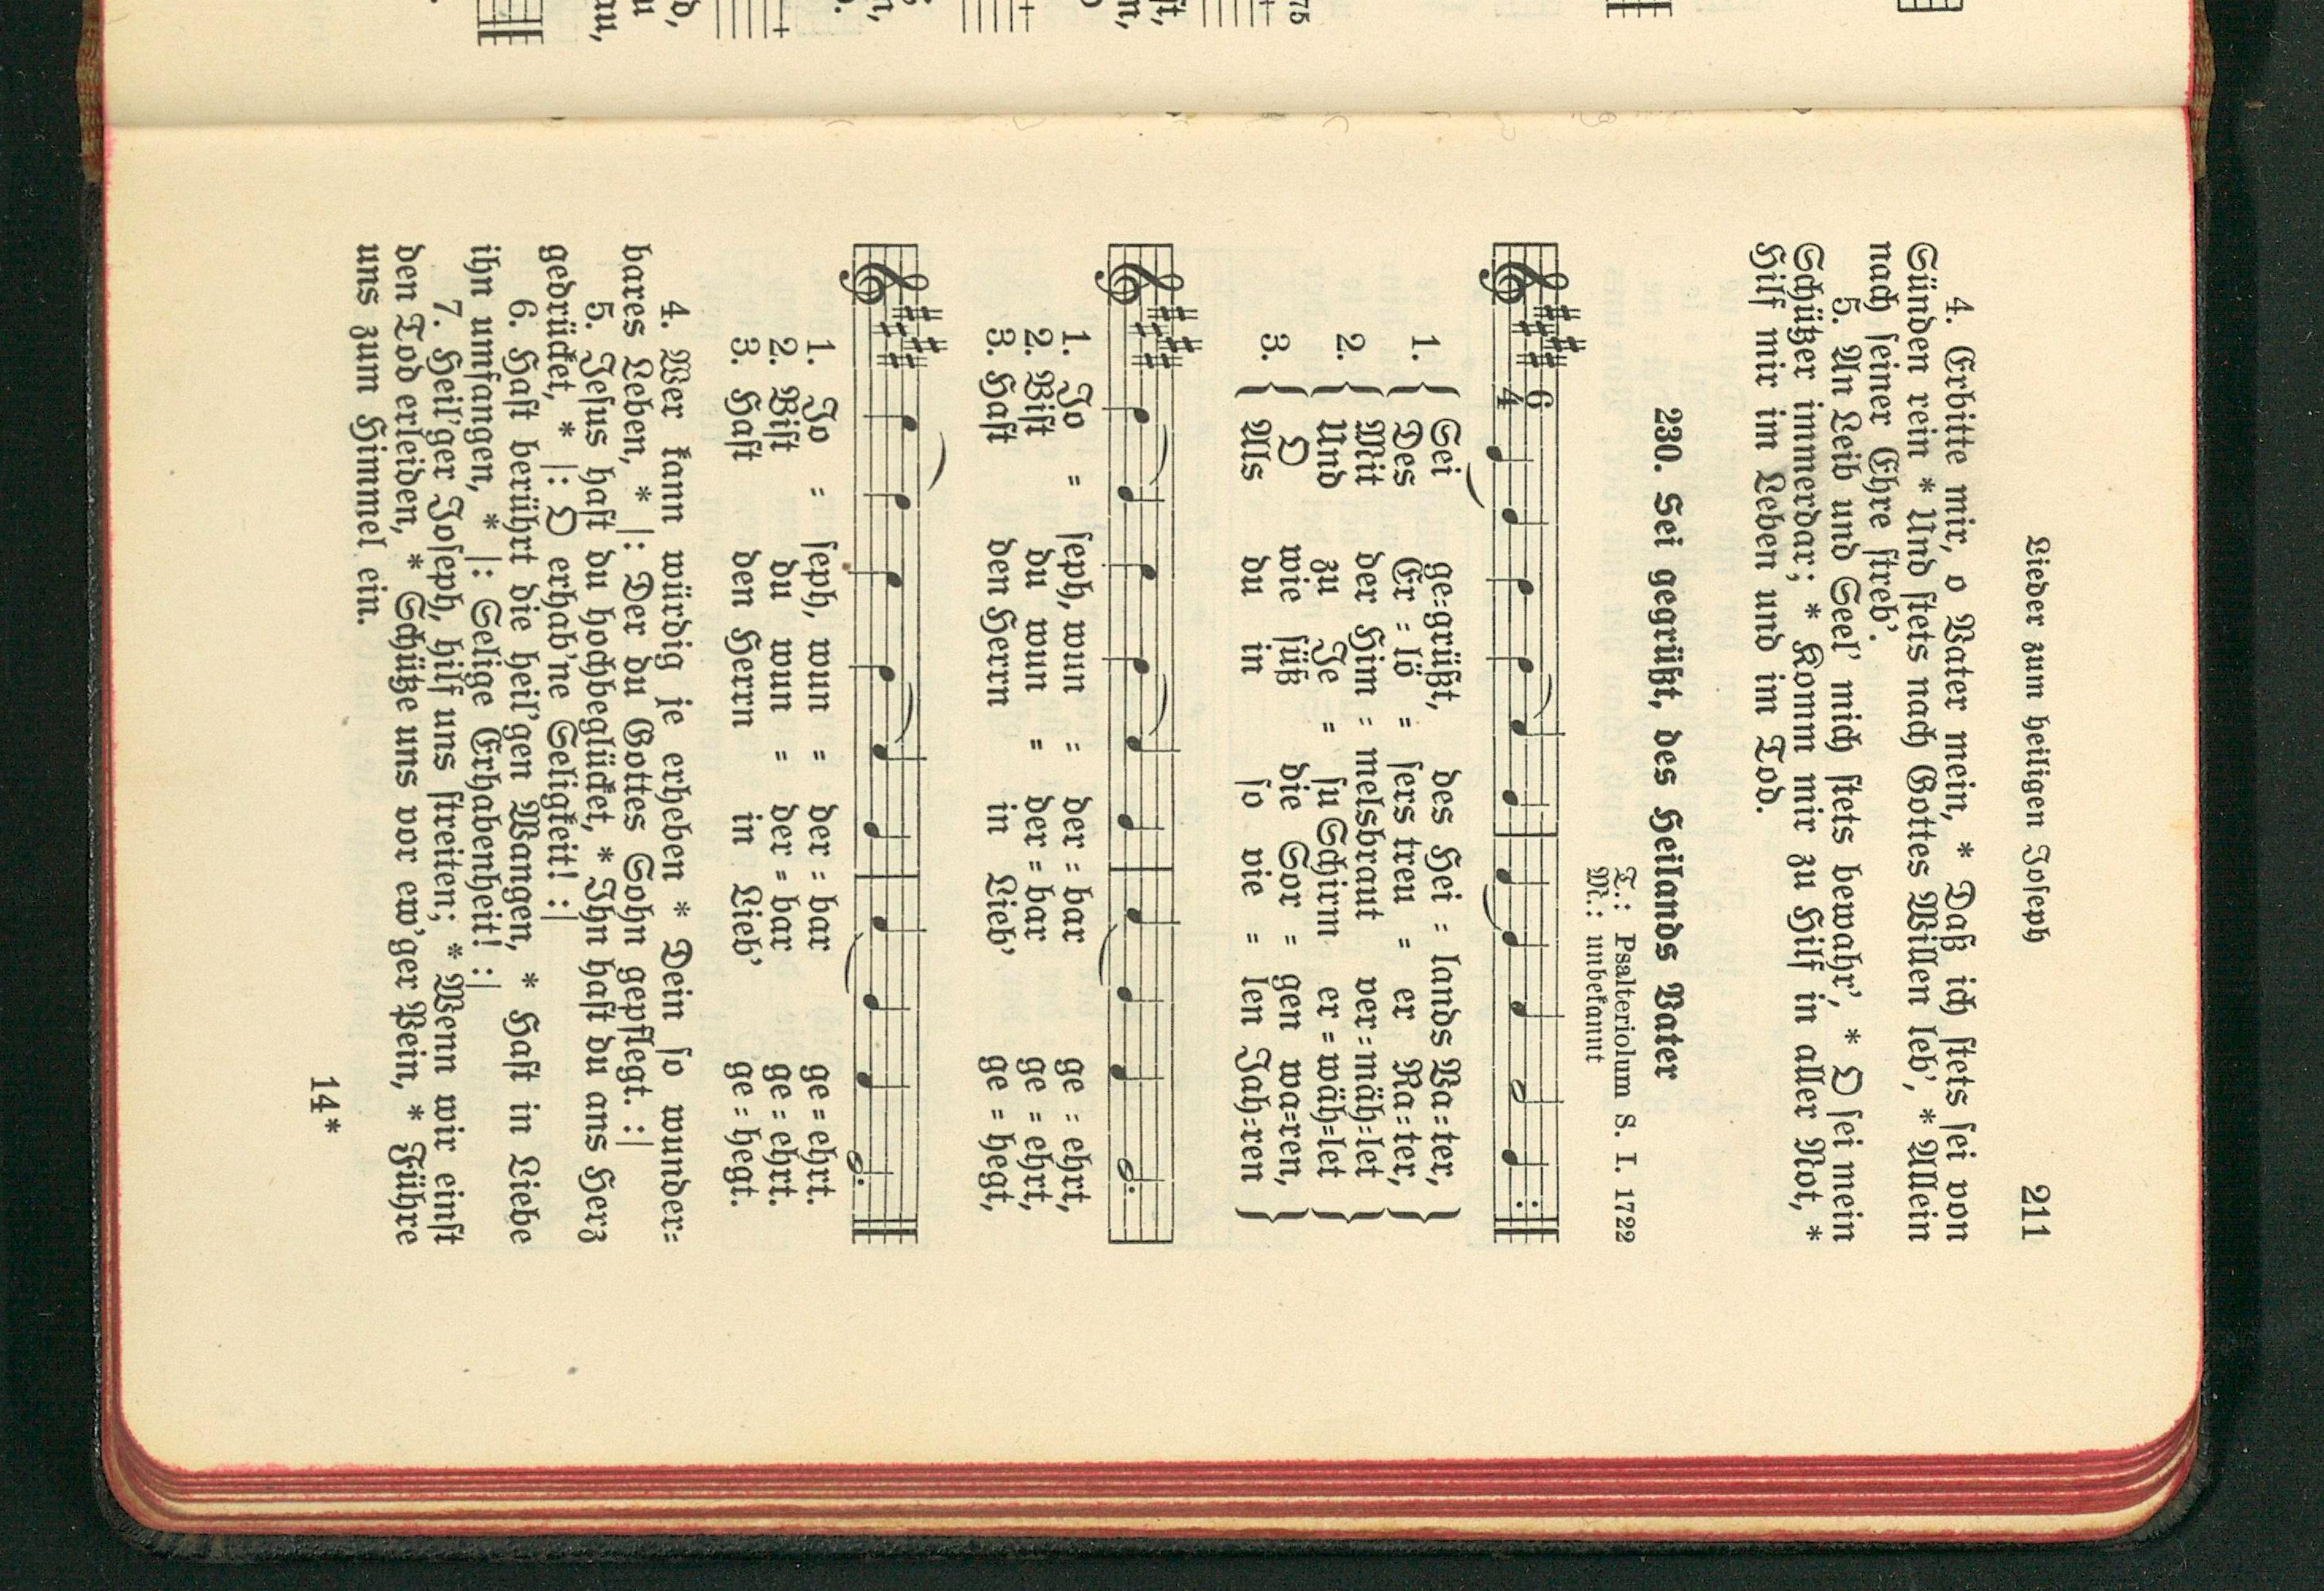 Lieder zum heiligen Joseph 211
4. Erbitte mir, o Vater mein, * Daß ich stets sei von
Sünden rein * Und stets nach Gottes Willen leb', * Allein
nach seiner Ehre streb'.
5. An Leib und Seel' mich stets bewahr', * O sei mein
Schützer immerdar; * Komm mir zu Hilf in aller Not, *
Hilf mir im Leben und im Tod.
230. Sei gegrüßt, des Heilands Vater
T.: Psalteriolum S. I. 1722
M.: unbekannt
6
4
1. { Sei ge=grüßt, des Hei = lands Va=ter, }
Des Er = lö = sers treu = er Na=ter,
2. { Mit der Him = melsbraut ver=mäh=let }
Und zu Je = su Schirm er=wäh=let
3. { O wie süß die Sor = gen wa=ren, }
Als du in so vie = len Jah=ren
1. Jo = seph, wun = der = bar ge = ehrt,
2. Bist du wun = der = bar ge = ehrt,
3. Hast den Herrn in Lieb' ge = hegt,
1. Jo = seph, wun = der = bar ge = ehrt.
2. Bist du wun = der = bar ge = ehrt.
3. Hast den Herrn in Lieb' ge = hegt.
4. Wer kann würdig je erheben * Dein so wunder=
bares Leben, * |: Der du Gottes Sohn gepflegt. :|
5. Jesus hast du hochbeglücket, * Ihn hast du ans Herz
gedrücket, * |: O erhab'ne Seligkeit! :|
6. Hast berührt die heil'gen Wangen, * Hast in Liebe
ihn umfangen, * |: Selige Erhabenheit! :|
7. Heil'ger Joseph, hilf uns streiten; * Wenn wir einst
den Tod erleiden, * Schütze uns vor ew'ger Pein, * Führe
uns zum Himmel ein.
14*